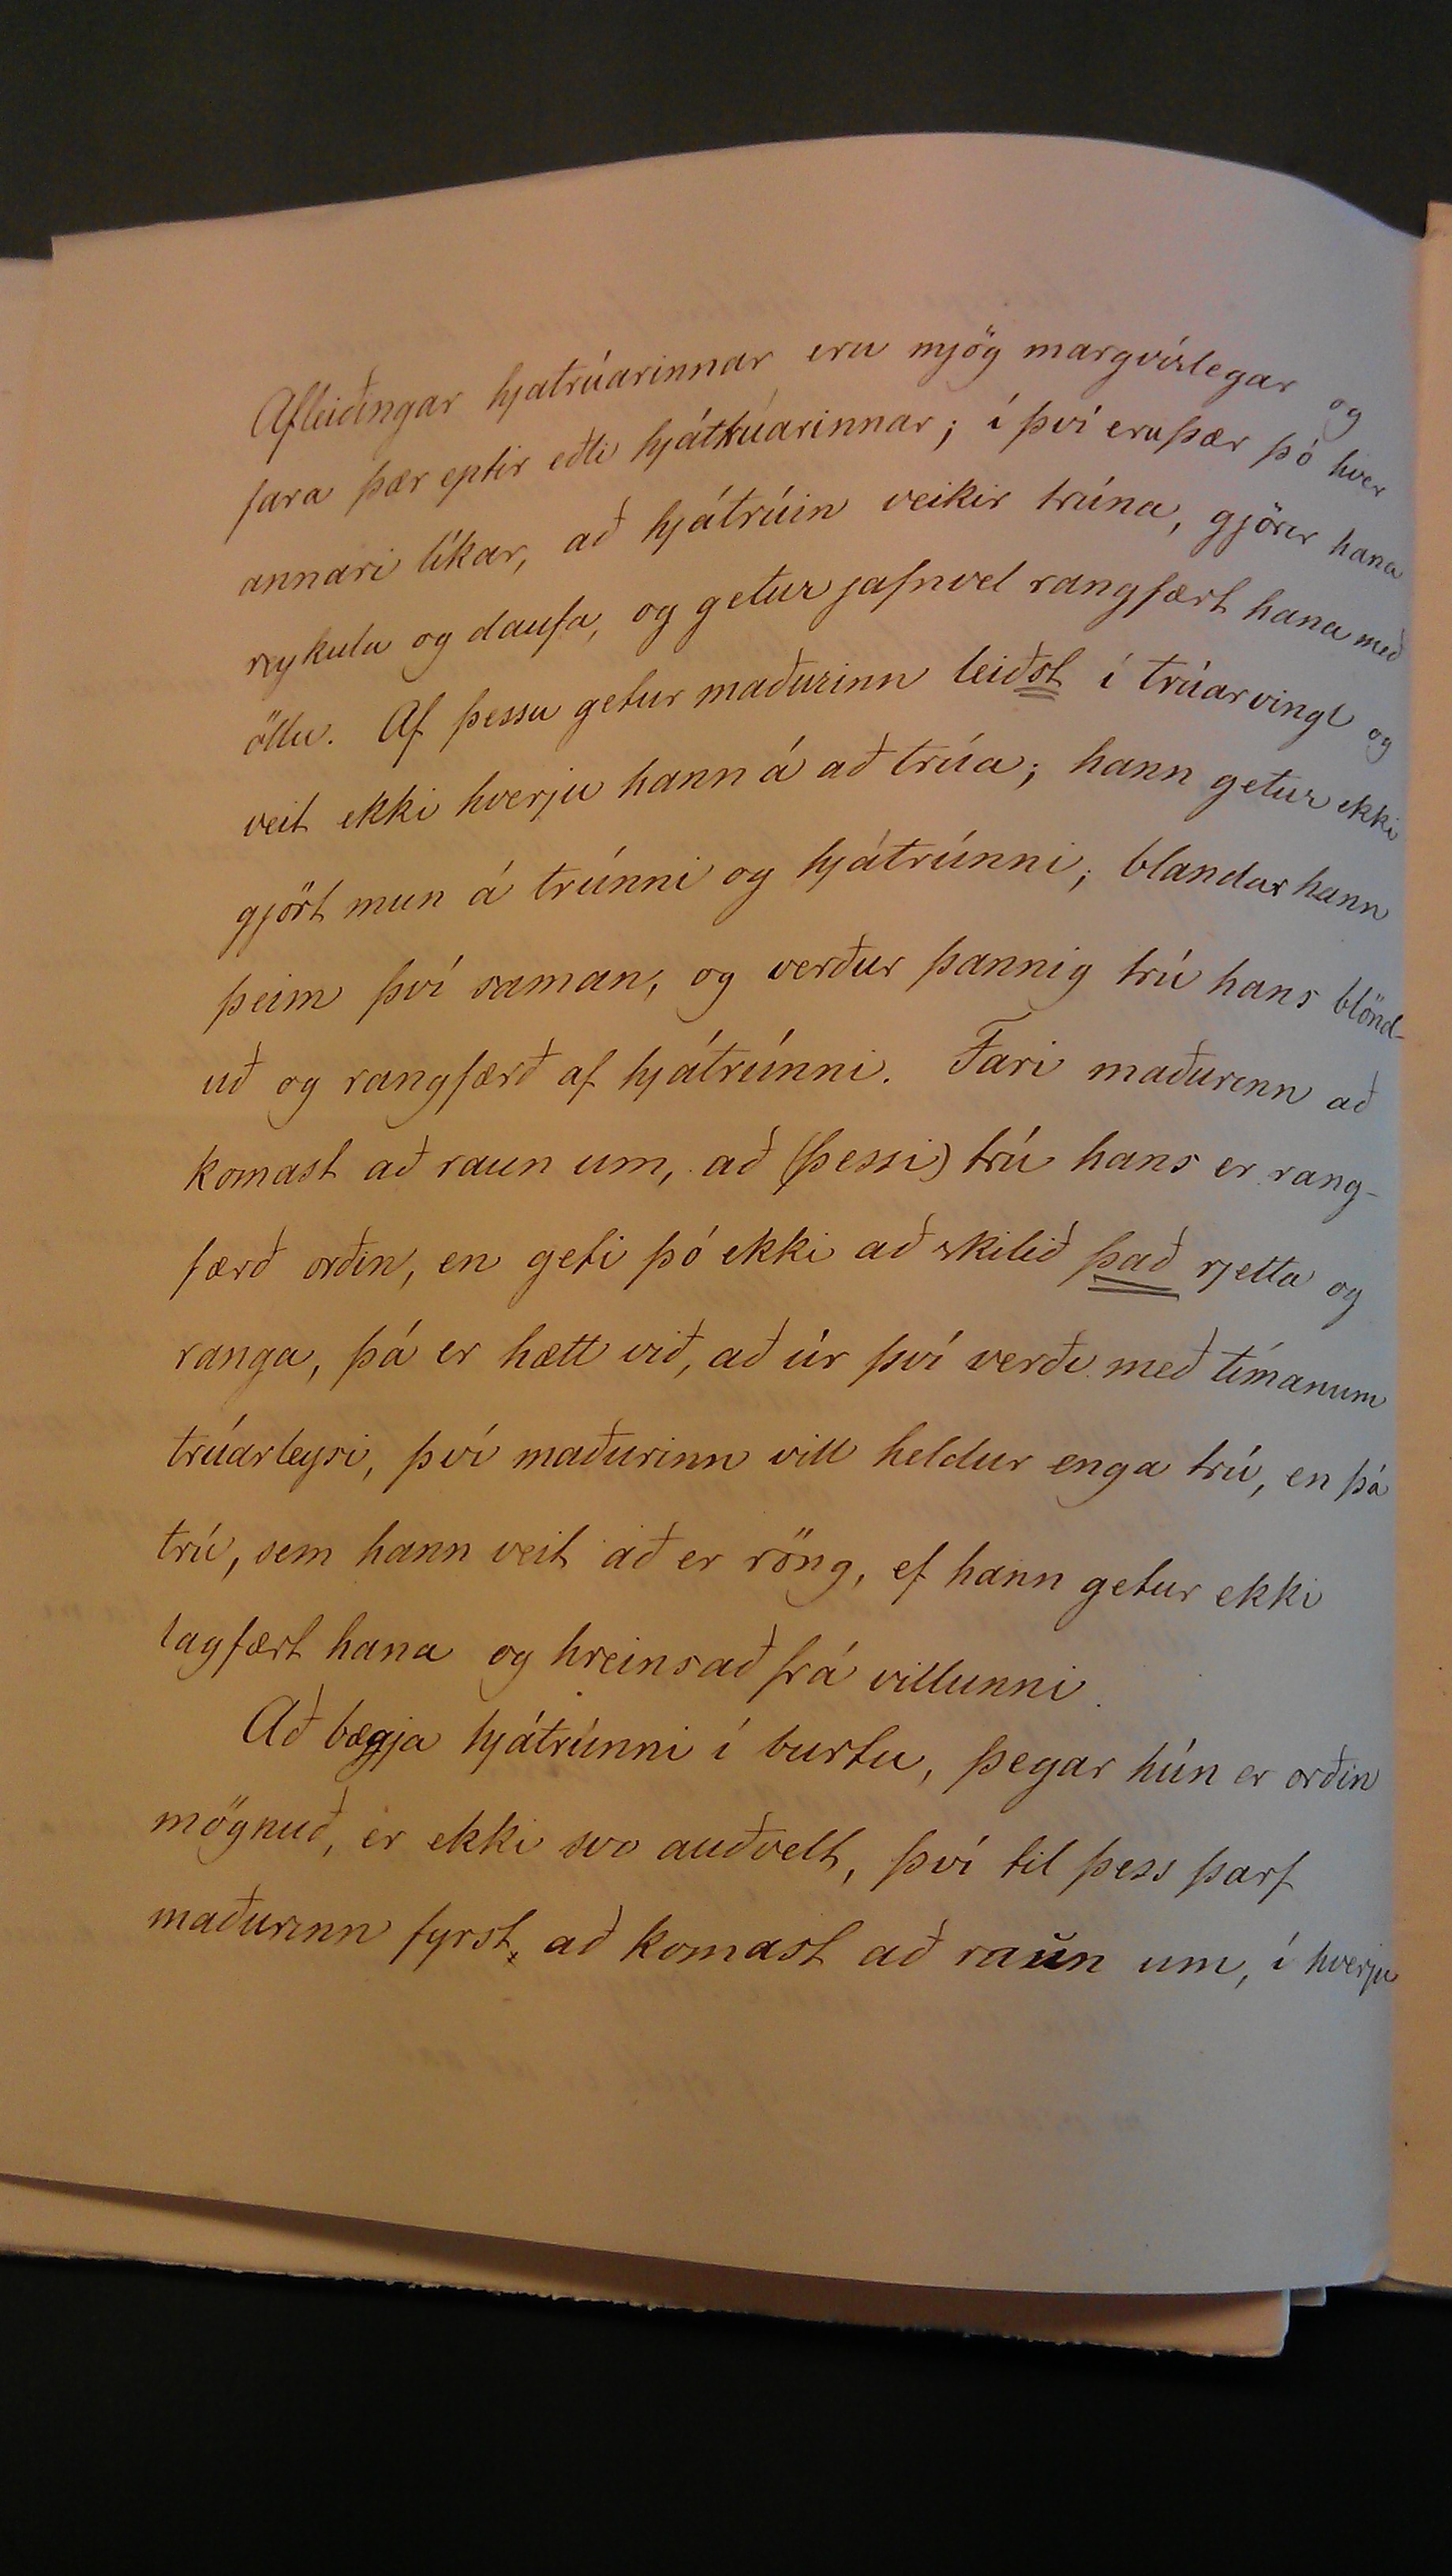 Afleiðingar hjatrúarinnar eru mjög margvíslegar og
fara þær eptir eðli hjátrúarinnar; í því eru þær þó hver
annari líkar, að hjátrúin veikir trúna, gjörir hana
reykula og daufa, og getur jafnvel rangfært hana með
öllu. Af þessu getur maðurinn leiðst í trúarvingl og
veit ekki hverju hann á að trúa; hann getur ekki
gjört mun á trúnni og hjátrúnni; blandar hann
þeim því saman, og verður þannig trú hans blönd-
uð og rangfærð af hjátrúnni. Fari maðurinn að
komast að raun um, að (þessi) trú hans er rang-
færð orðin, en geti þó ekki að skilið það rjetta og
ranga, þá er hætt við, að úr því verði með tímanum
trúarleysi, því maðurinn vill heldur enga trú, en þá
trú, sem hann veit að er röng, ef hann getur ekki
lagfært hana og hreinsað frá villunni.
Að bægja hjátrúnni í burtu, þegar hún er orðin
mögnuð, er ekki svo auðvelt, því til þess þarf
maðurinn fyrst, að komast að raun um, í hverju